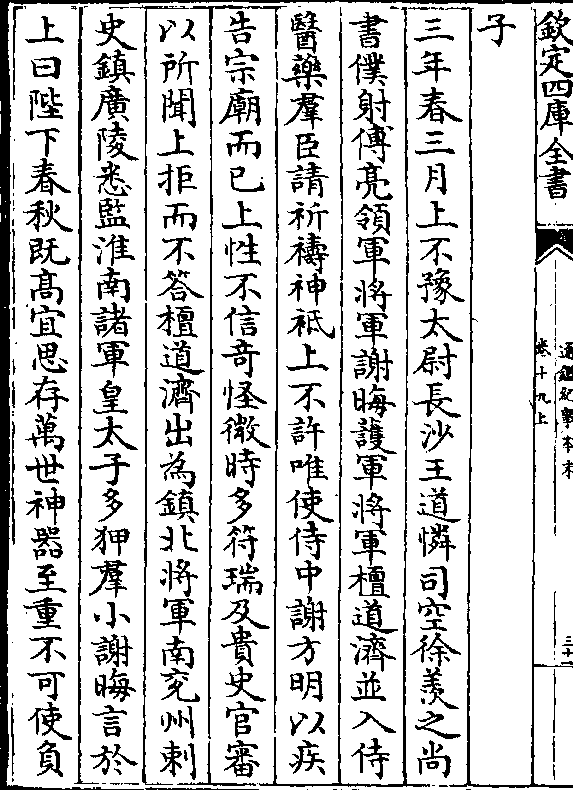 欽定四庫全書
通鑑紀事本末
卷十九上
三十一
子
三年春三月上不豫太尉長沙王道憐司空徐羨之尚
書僕射傅亮領軍將軍謝晦護軍將軍檀道濟並入侍
醫藥羣臣請祈禱神祇上不許唯使侍中謝方明以疾
告宗廟而已上性不信奇怪微時多符瑞及貴史官審
以所聞上拒而不答檀道濟出為鎮北將軍南兗州刺
史鎮廣陵悉監淮南諸軍皇太子多狎羣小謝晦言於
上曰陛下春秋既髙宜思存萬世神器至重不可使負